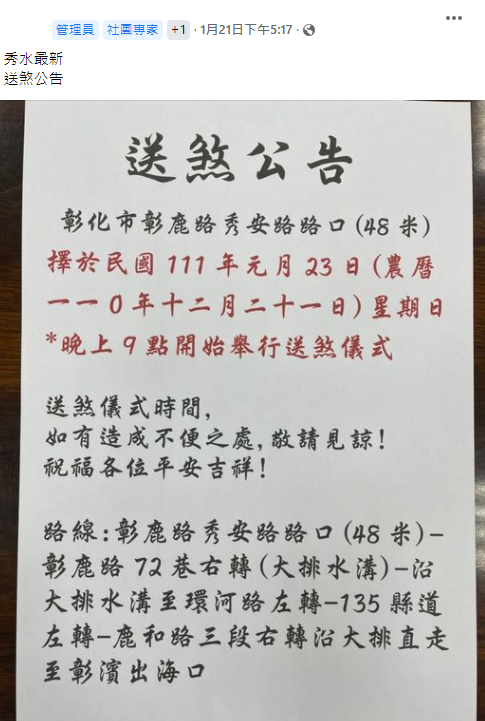 管理員 社團專家 +1 · 1月21日下午5:17 ·
秀水最新
送煞公告
送煞公告
彰化市彰鹿路秀安路路口(48 米)
擇於民國 111 年元月 23 日(農曆
一一0年十二月二十一日)星期日
*晚上 9 點開始舉行送煞儀式
送煞儀式時間,
如有造成不便之處,敬請見諒!
祝福各位平安吉祥!
路線:彰鹿路秀安路路口(48 米)-
彰鹿路 72 巷右轉(大排水溝)-沿
大排水溝至環河路左轉-135 縣道
左轉-鹿和路三段右轉沿大排直走
至彰濱出海口